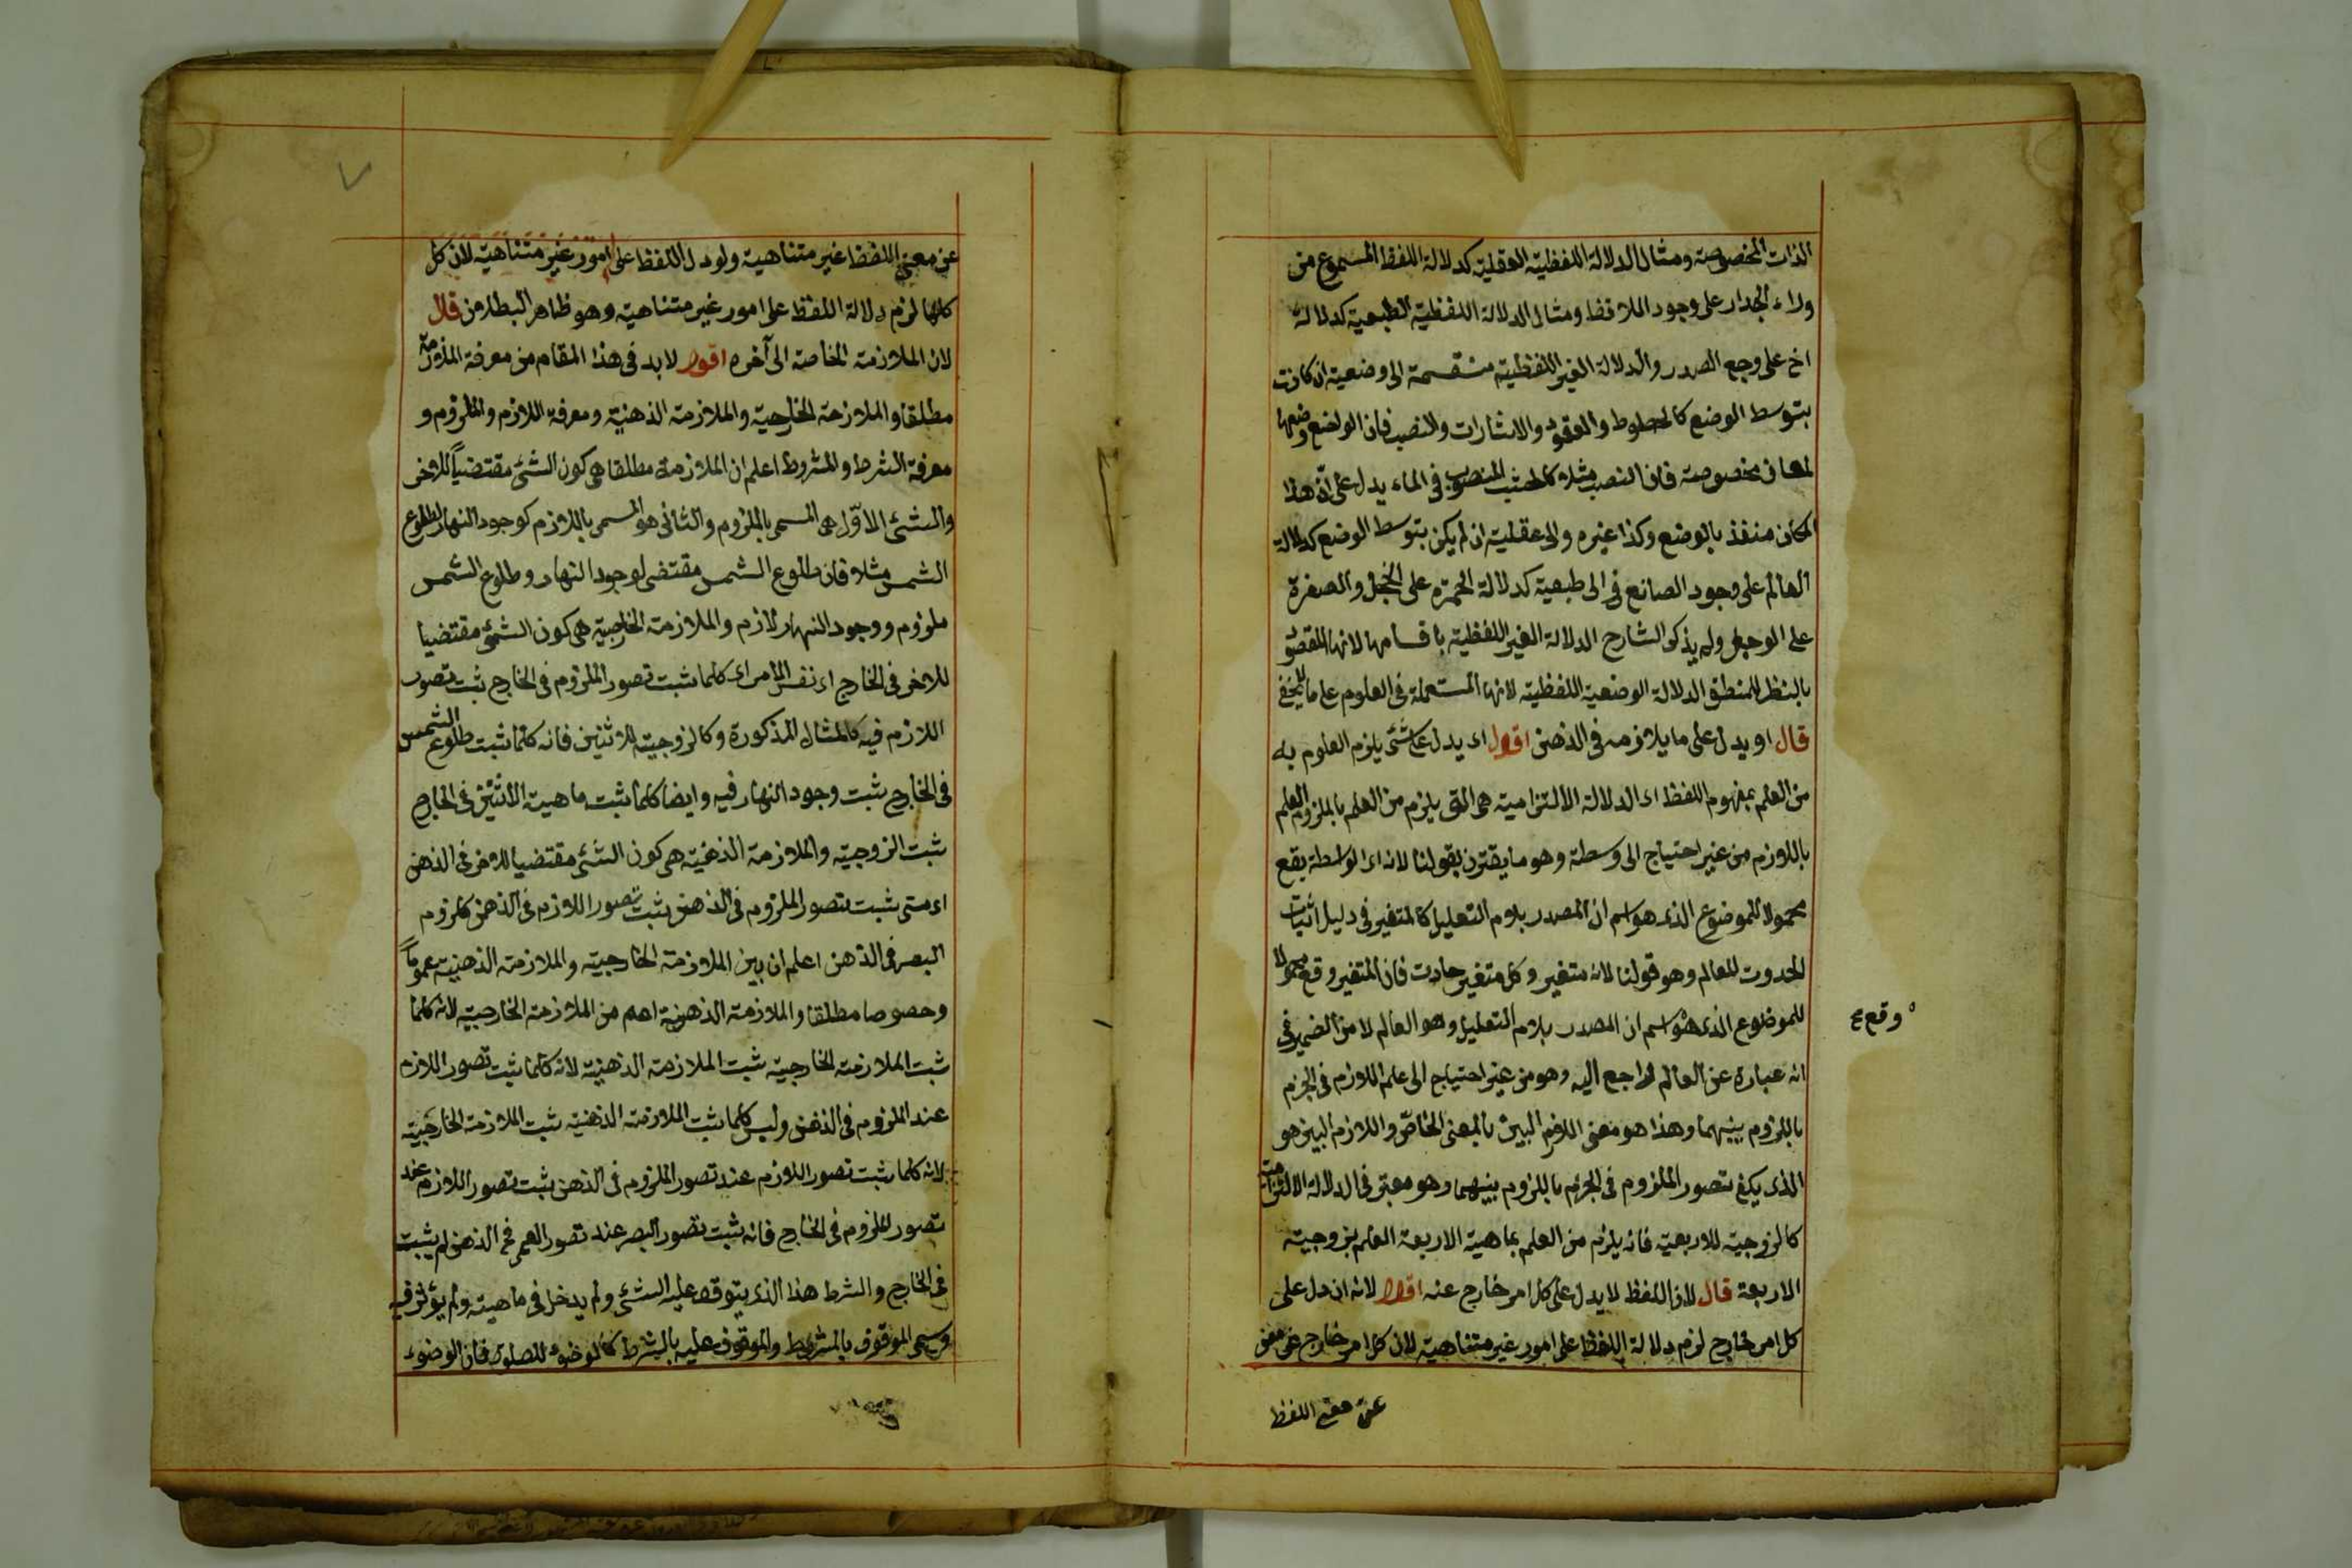 الذات المخصوصة ومثال الدلالة اللفظية العقلية كدلالة اللفظ المسموع من
وراء الجدار على وجود اللافظ ومثال الدلالة اللفظية الطبعية كدلالة
اخ على وجع الصدر والدلالة الغير اللفظية منقسمة الى وضعية ان كانت
بتوسط الوضع كالخطوط والعقود والاشارات والنصب فان الواضع وضعها
لمعان مخصوصة فان النصب مثلا كالخشب المنصوب فى الماء يدل على ان هذا
المكان منفذ بالوضع وكذا غيره والى عقلية ان لم يكن بتوسط الوضع كدلالة
العالم على وجود الصانع والى طبعية كدلالة الحمرة على الخجل والصفرة
على الوجل ولم يذكر الشارح الدلالة الغير اللفظية باقسامها لانها المقصود
بالنظر للمنطق الدلالة الوضعية اللفظية لانها المستعملة فى العلوم على ما لا يخفى
قال او يدل على ما يلازمه فى الذهن اقول اى يدل على شئ يلزم العلوم به
من العلم بمفهوم اللفظ اى الدلالة الالتزامية هى التى يلزم من العلم بالملزوم العلم
باللازم من غير احتياج الى وسطة وهو ما يقترن بقولنا لانه اى الواسطة يقع
محمولا للموضوع الذى هو اسم ان المصدر بلام التعليل كالمتغير فى دليل اثبات
الحدوث للعالم وهو قولنا لانه متغير وكل متغير حادث فان المتغير وقع محمولا
للموضوع الذى هو اسم ان المصدر بلام التعليل وهو العالم لا من الضمير فى
وقع ع
انه عبارة عن العالم لراجع اليه وهو من غير احتياج الى علم اللازم فى الجزم
باللزوم بينهما وهذا هو معنى اللازم البين بالمعنى الخاص واللازم البين هو
الذى يكفى تصور الملزوم فى الجزم باللزوم بينهما وهو معتبر فى الدلالة الالتزامية
كالزوجية للاربعة فانه يلزم من العلم بماهية الاربعة العلم بزوجية
الاربعة قال لان اللفظ لا يدل على كل امر خارج عنه اقول لانه ان دل على
كل امر خارج لزم دلالة اللفظ على امور غير متناهية لان كل امر خارج عن معنى
عن معنى اللفظ
عن معنى اللفظ غير متناهية ولو دل اللفظ على امور غير متناهية لان كل
كلها لزم دلالة اللفظ على امور غير متناهية وهو ظاهر البطلان قال
لان الملازمة الخاصة الى آخره اقول لا بد فى هذا المقام من معرفة الملازمة
مطلقا والملازمة الخارجية والملازمة الذهنية ومعرفة اللازم والملزوم و
معرفة الشرط والمشروط اعلم ان الملازمة مطلقا هى كون الشئ مقتضيا للاخر
والشئ الاول هى المسمى بالملزوم والثانى هو المسمى باللازم كوجود النهار لطلوع
الشمس مثلا فان طلوع الشمس مقتضى لوجود النهار وطلوع الشمس
ملزوم ووجود النهار لازم والملازمة الخارجية هى كون الشئ مقتضيا
للاخر فى الخارج اى نفس الامر اى كلما ثبت تصور الملزوم فى الخارج ثبت تصور
اللازم فيه كالمثال المذكورة وكالزوجية للاثنين فانه كلما ثبت طلوع الشمس
فى الخارج ثبت وجود النهار فيه وايضا كلما ثبت ماهية الاثنين فى الخارج
ثبت الزوجية والملازمة الذهنية هى كون الشئ مقتضيا للاخر فى الذهن
اى متى ثبت تصور الملزوم فى الذهن ثبت تصور اللازم فى الذهن كلزوم
البصر فى الذهن اعلم ان بين الملازمة الخارجية والملازمة الذهنية عموما
وحصوصا مطلقا والملازمة الذهنية اهم من الملازمة الخارجية لانه كلما
ثبت الملازمة الخارجية ثبت الملازمة الذهنية لانه كلما ثبت تصور اللازم
عند الملزوم فى الذهن وليس كلما ثبت الملازمة الذهنية ثبت الملازمة الخارجية
لانه كلما ثبت تصور اللازم عند تصور الملزوم فى الذهن ثبت تصور اللازم عند
تصور الملزوم فى الخارج فانه ثبت تصور البصر عند تصور العمى فى الذهن لم يثبت
فى الخارج والشرط هذا الذى يتوقف عليه الشئ ولم يدخل فى ماهيته ولم يؤثر فيه
ويسمى الموقوف بالمشروط والموقوف عليه بالشرط كالوضوء للصلوة فان الوضوء